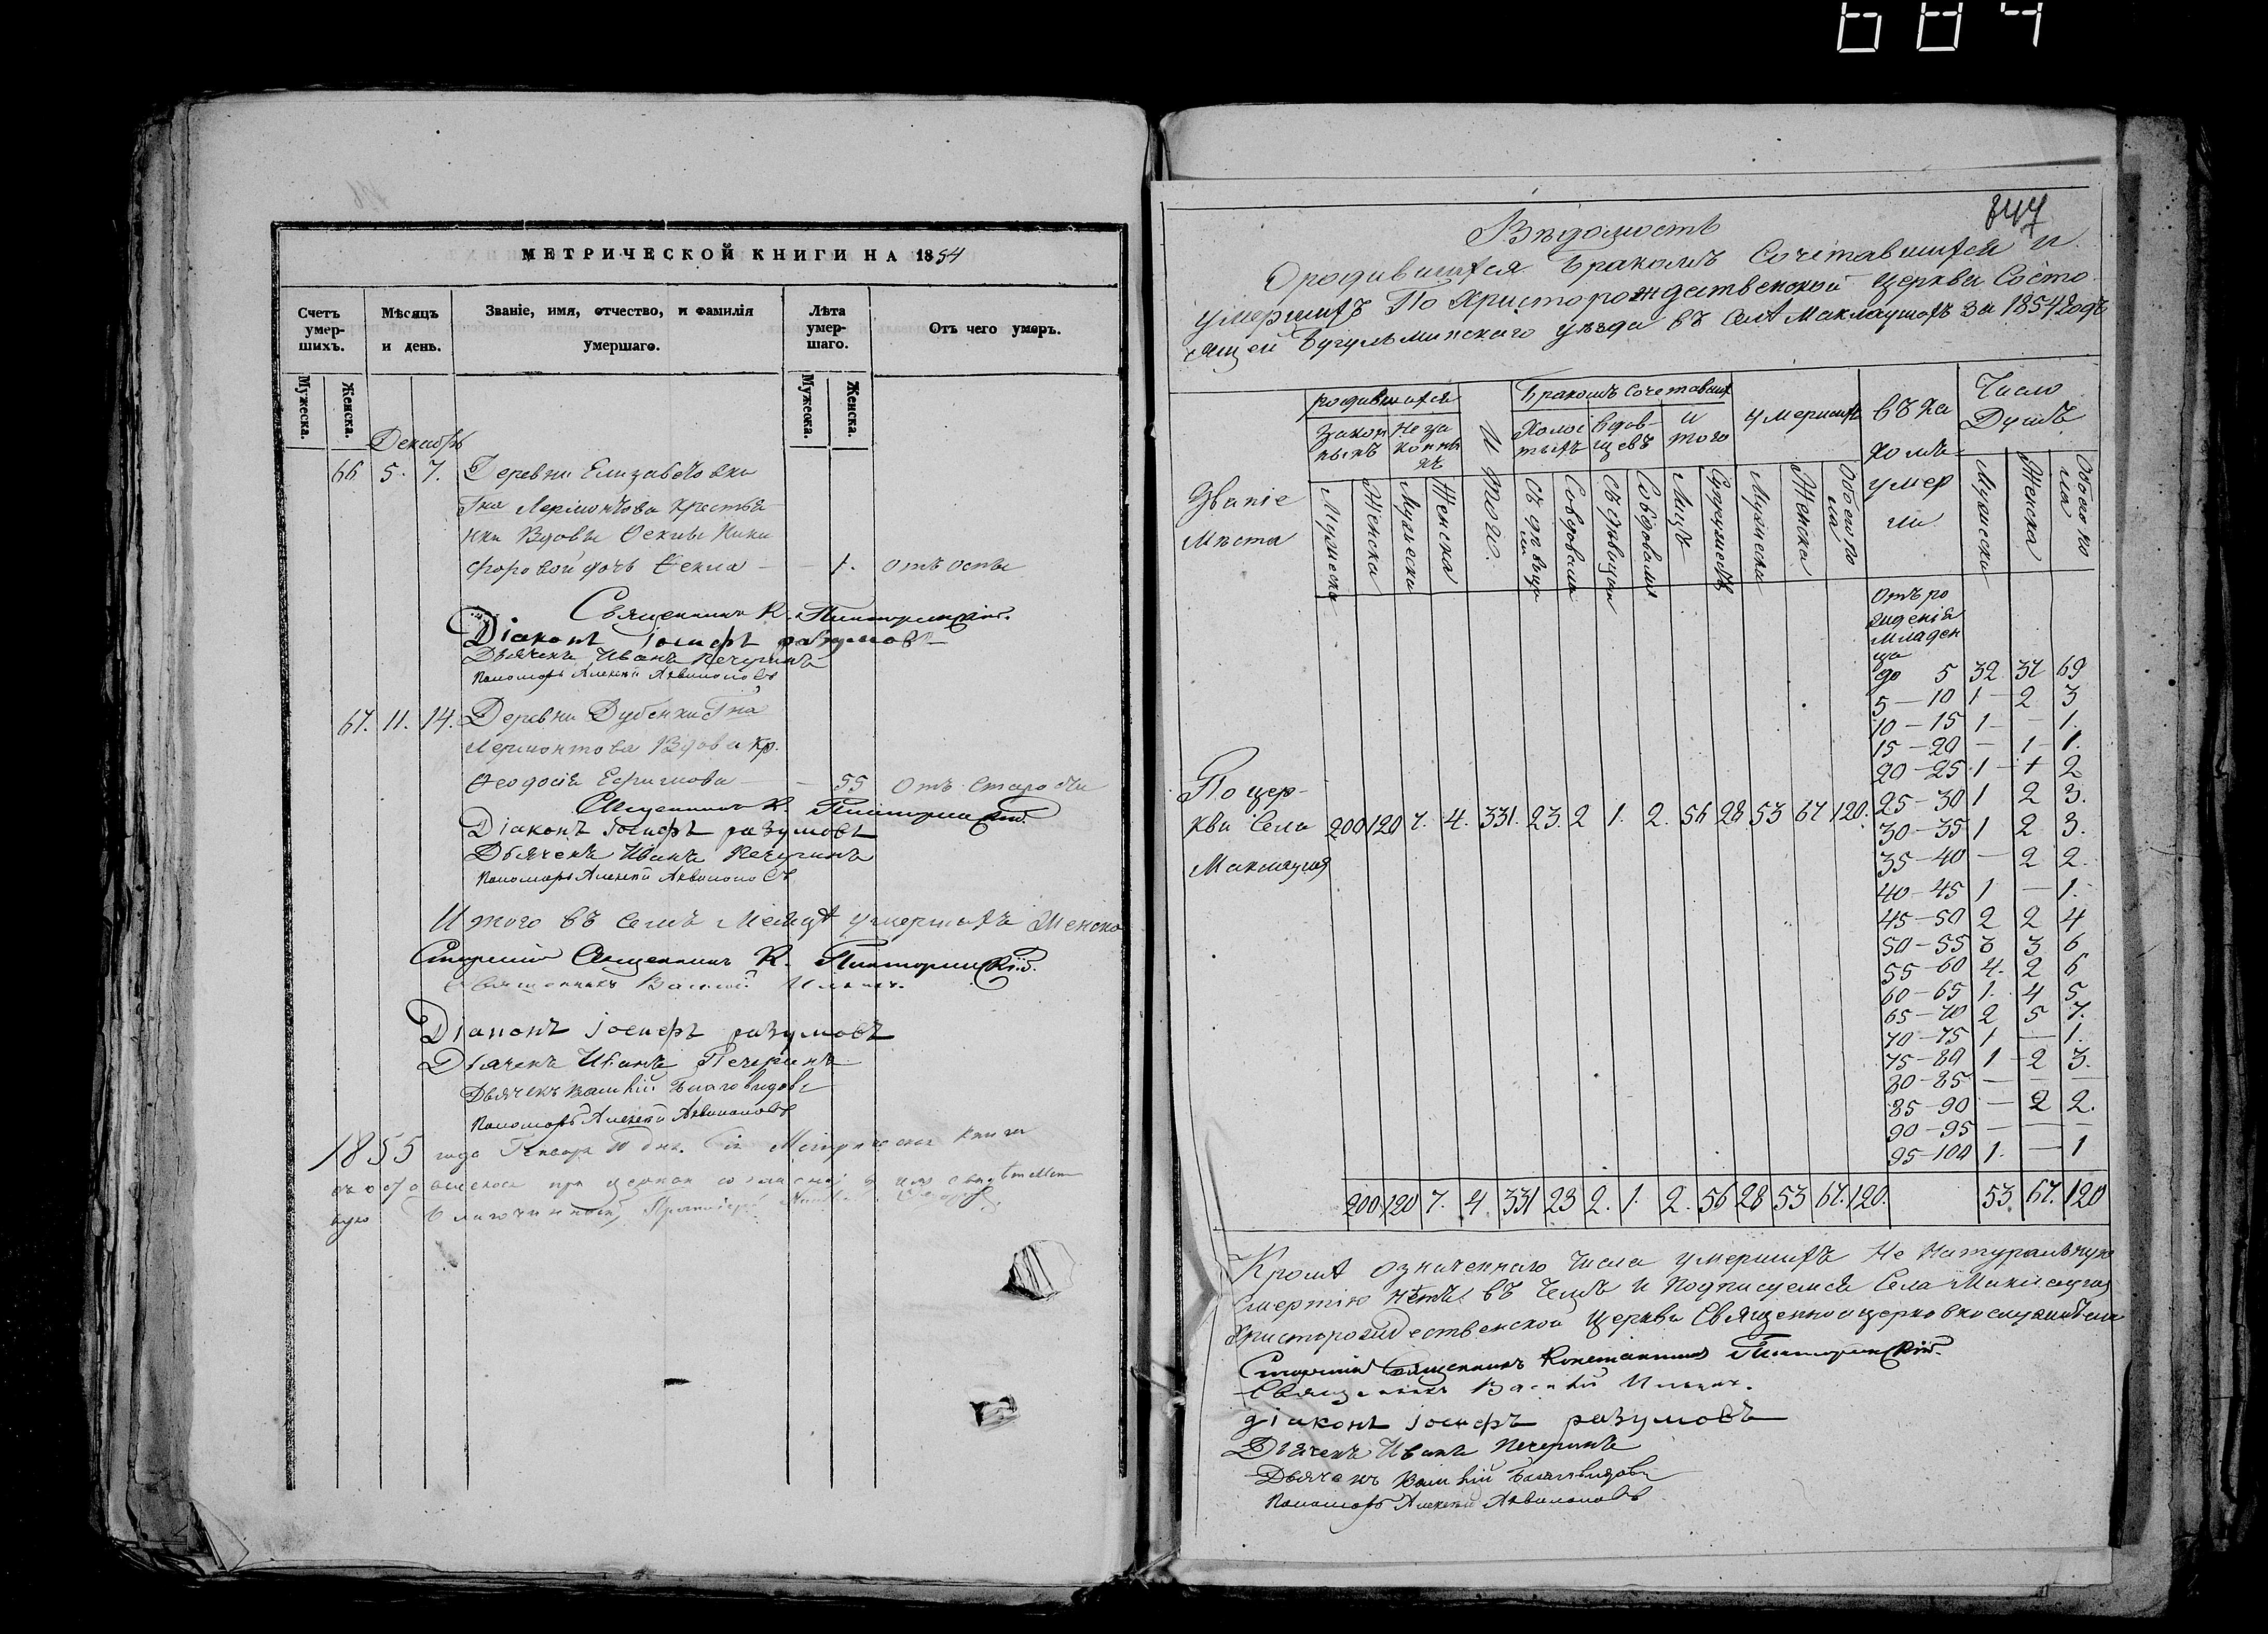 684
МЕТРИЧЕСКОЙ КНИГИ НА 1854
Счетъ умер-шихъ.
Мѣсяцъ и день.
Званіе, имя, отчество, и фамилія умершаго.
Лѣта умер-шаго.
Отъ чего умеръ.
Мужеска.
Женска.
Мужеска.
Женска.
Декабрь
66 5. 7. Деревни Елизаветовки
Гна Лермонтова Крестья
нки Вдовы Феклы Ники
форовой дочь Фекла — — 1. отъ оспы
Священникъ К.
Діаконъ Іосифъ разумовъ
Дьячекъ Иванъ Печеринъ
Пономарь Алексѣй Аквилоновъ
67. 11. 14. Деревни Дубенки Гна
Лермонтова Вдова кр.
Феодосія Ефимова — — 55 Отъ старости
Священникъ К.
Діаконъ Іосифъ разумовъ
Дьячекъ Иванъ Печеринъ
Пономарь Алексѣй Аквилоновъ
Итого въ семъ Месяцѣ умершихъ Женска
Старшій Священникъ К.
Священникъ Василій Ильинъ.
Діаконъ Іосифъ разумовъ
Дьячекъ Иванъ Печеринъ
Дьячекъ Василій Благовидовъ
Пономарь Алексѣй Аквилоновъ
1855 года Генваря 10 дня. Сія Метрическая Книга
при церкви
Благочинный, Протоіерей
847
Вѣдомость
О родившихся Бракомъ Сочетавшихся и
умершихъ По Христорождественской Церкви Состо
ящей Бугульминскаго уѣзда въ Селѣ Маклаушахъ За 1854 Годъ
Званіе Мѣста
родившихся
Закон ныхъ
Не за конны хъ
Мужеска
Женска
Мужеска
Женска
Итого.
Бракомъ Сочетавших
Холос тыхъ
вдов-цевъ
и того
Съ дѣвицы
Со вдовами
Съ дѣвицами
Со вдовами
Лицъ
Супружествъ
умершихъ
Мужеска
Женска
Обоего по ла
въ ка кохъ умер ли
Число Душъ
Мужеска
Женска
Обоего по ла
Отъ ро жденія младен ца
до 5 32 37 69
5—10 1 — 2 3
10—15 1 — — 1.
15—20 — 1 — 1.
20—25 1 — 1 2
25—30 1 2 3.
30—35 1 2 3.
35—40 — 2 2.
40—45 1 — 1.
45—50 2 2 4
50—55 3 3 6
55—60 4. 2 6
60—65 1. 4 5
65—70 2 5 7.
70—75 1 — 1.
75—80 1 — 2 3.
80—85 — — —
85—90 — 2 2.
90—95 — — —
95—100 1. — 1
По цер-
кви Села 200 120 7. 4. 331. 23. 2 1. 2. 56 28 53 67 120.
Маклауша
200 120 7. 4 331 23 2. 1. 2. 56 28 53 67. 120. 53. 67. 120
Кромѣ означеннаго числа умершихъ Не Натуральную
Смертію нѣтъ въ чемъ и Подписуемся Села Маклауша
Христорождественской Церкви Священноцерковнослужители
Старшій Священникъ Константинъ
Священникъ Василій Ильинъ.
діаконъ Іосифъ разумовъ
Дьячекъ Иванъ Печеринъ
Дьячекъ Василій Благовидовъ
Пономарь Алексѣй Аквилоновъ